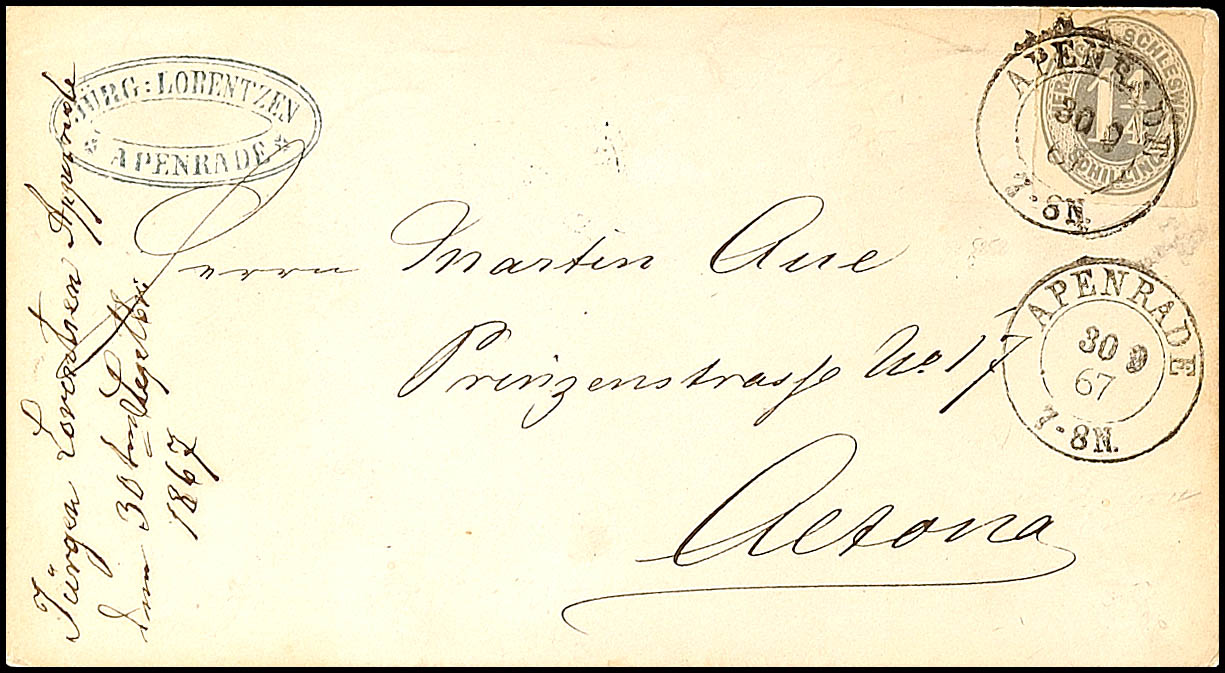 JÜRG: LORENTZEN
APENRADE
Herrn Martin Aue
Prinzenstrasse No 17
Altona
Jürgen Lorentzen Apenrade
den 30ten Septbr
1867
SCHLESWIG
1 1/4
SCHILLING
APENRADE
30 9
67
7-8N.
APENRADE
30 9
67
7-8N.